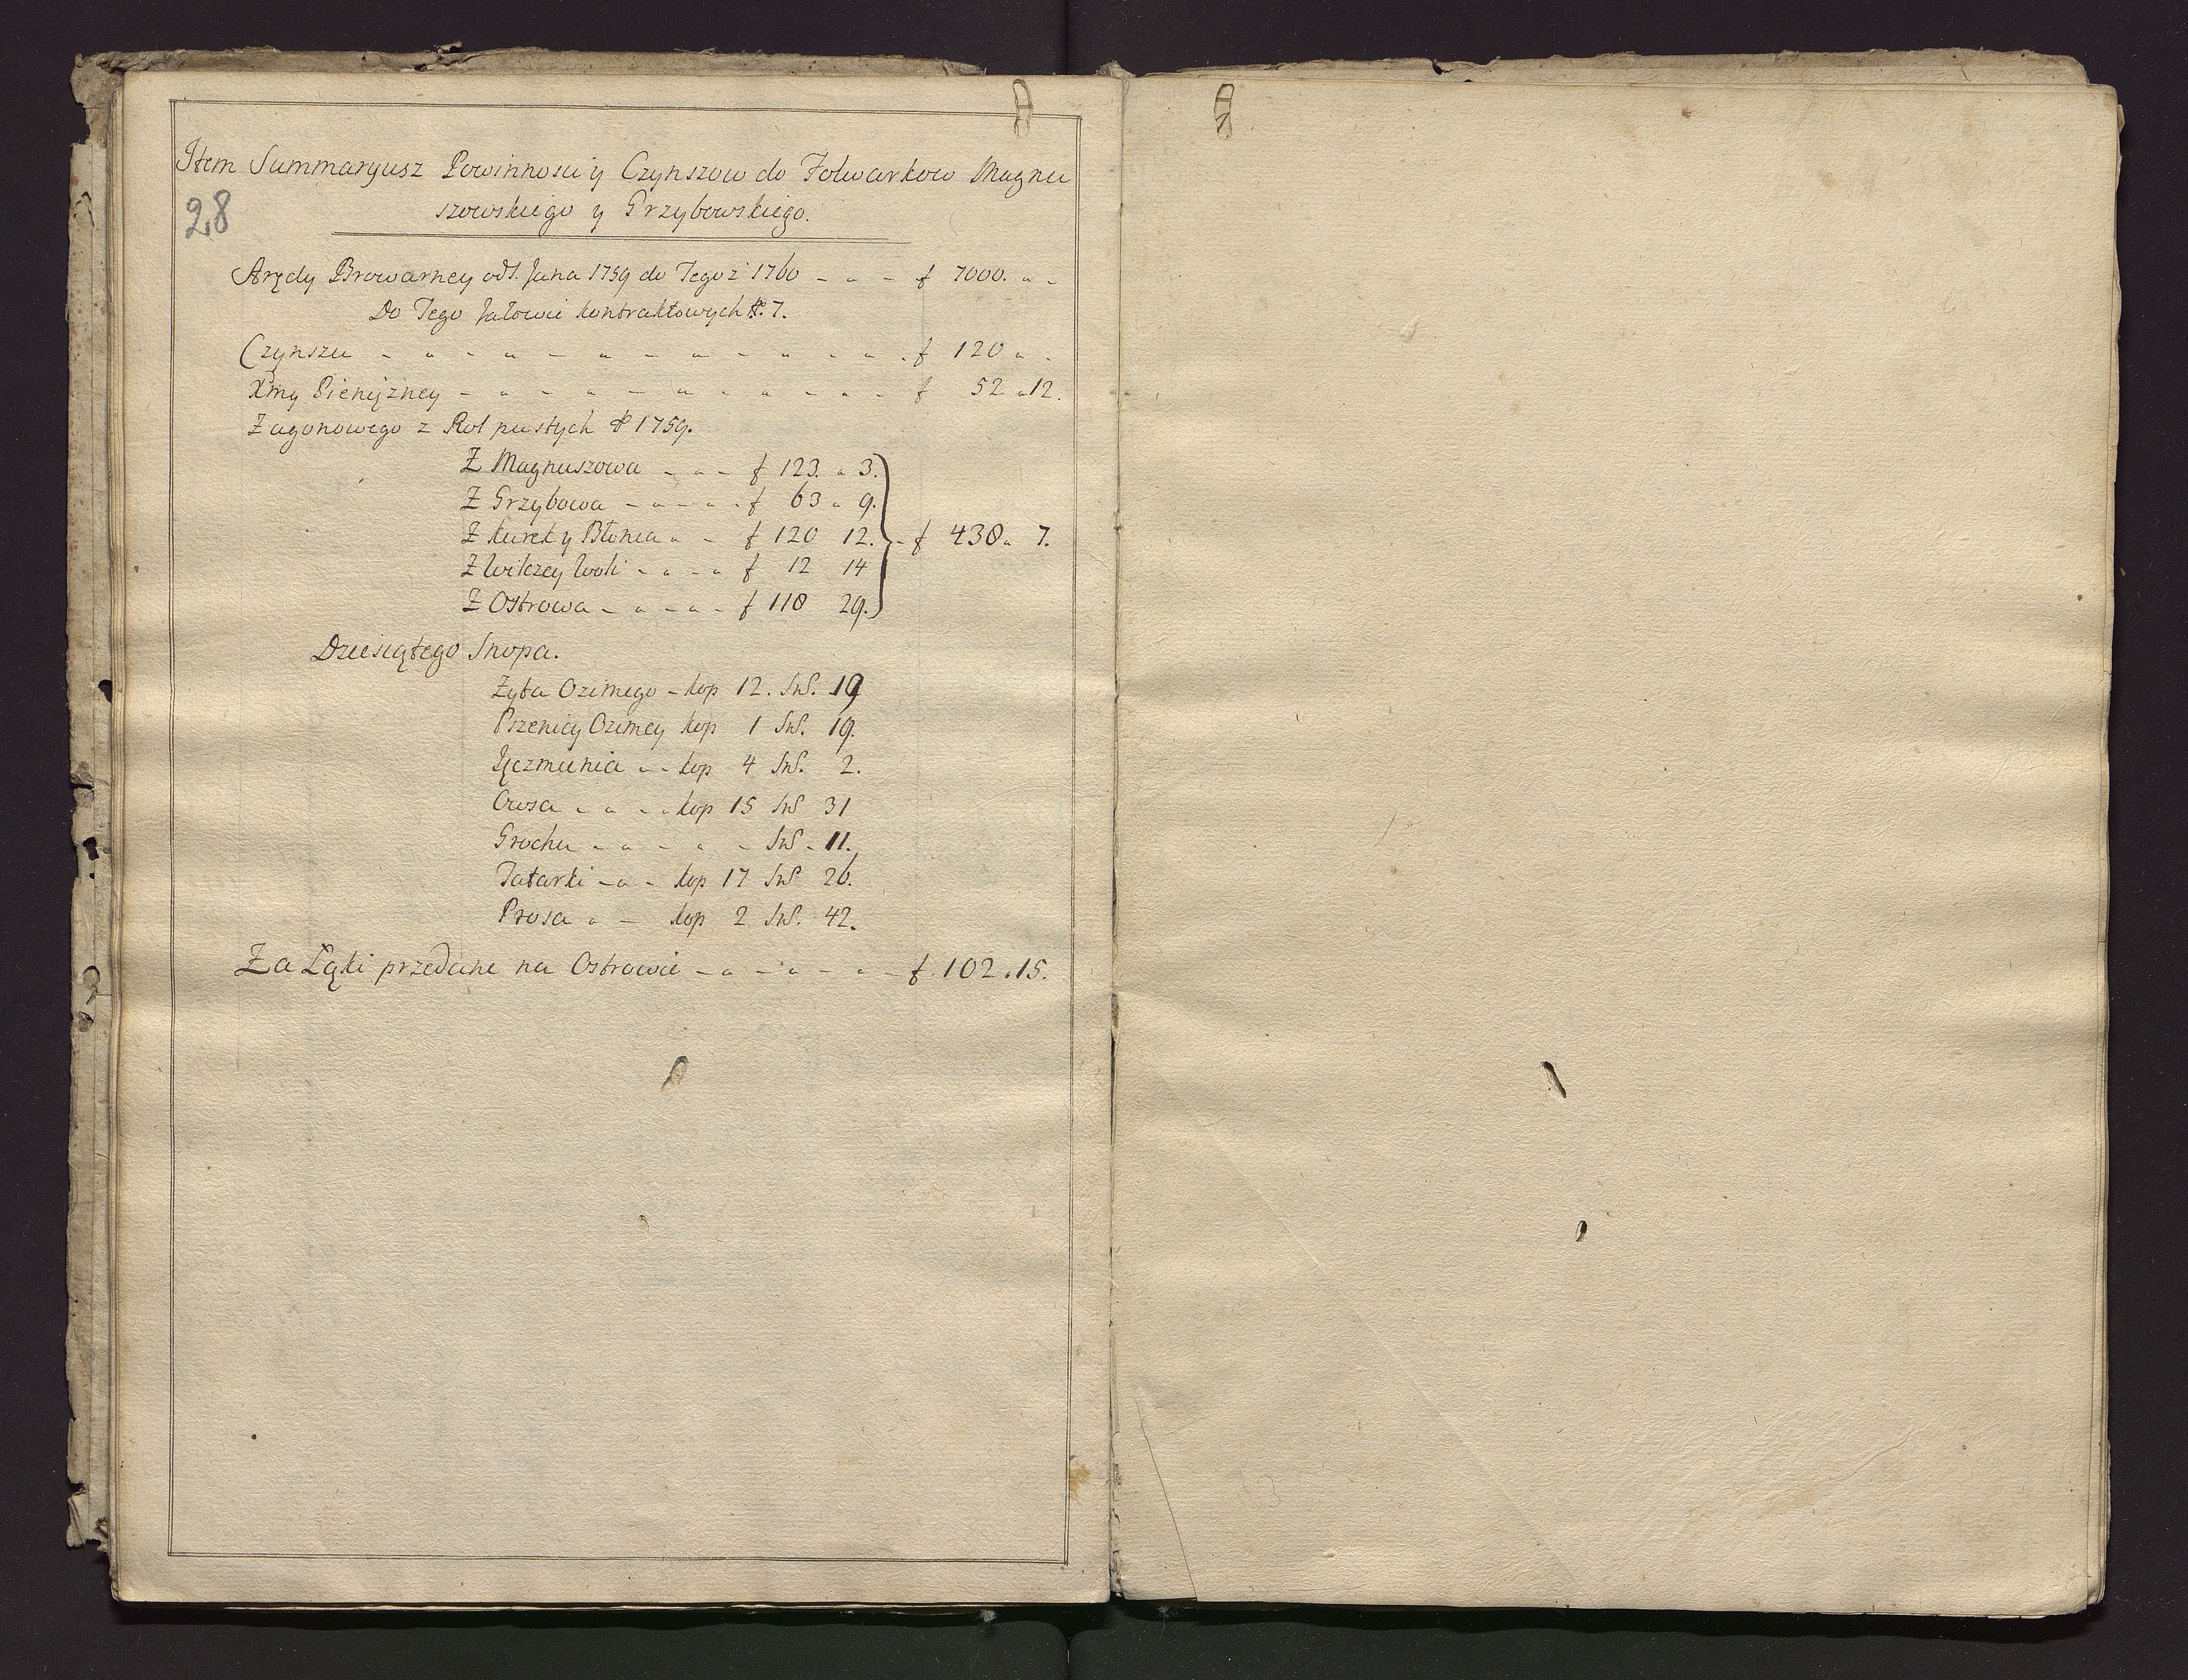 Item Summaryusz Powinnosci y Czynszow do Folwarkow Magnu
28
szowskiego y Grzybowskiego.
Arędy Browarney od S. Jana 1759 do Tegoż 1760 - " - f 7000. " -
Do Tego Jałowic kontraktowych N. 7.
Czynszu - " - " - " - " - " - " . f 120 " -
Xmy Pieniężney - " - " - " - " - " - f 52 " 12.
Zagonowego z Rol pustych 1759.
Z Magnuszowa - " - f 123. " 3.
Z Grzybowa - " - " . f 63 " 9.
Z Kurek y Błonia " - f 120 12. - f 438 " 7.
Z Wilczey Woli - " - " f 12 14
Z Ostrowa - " - " - f 118 29.
Dziesiątego Snopa.
Zyta Ozimego - kop 12. Sn. 19
Pszenicy Ozimey kop 1 Sn. 19.
Jęczmienia " - kop 4 Sn. 2.
Owsa - " - kop 15 Sn 31
Grochu - " - " - Sn - 11.
Tatarki - " - kop 17 Sn 26.
Prosa " - kop 2 Sn. 42.
Za Łąki przedane na Ostrowie - " - " - " - f. 102 . 15.